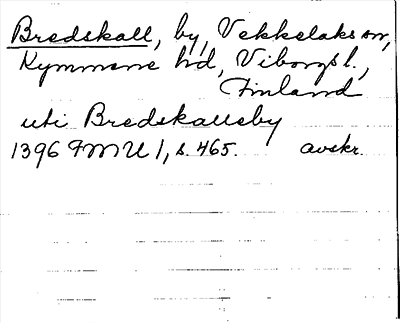 Bredskall, by, Vekkelaks sn,
Kymmene hd, Viborgs l.,
Finland
uti Bredskallaby
1396 FMU 1, s. 465. avskr.